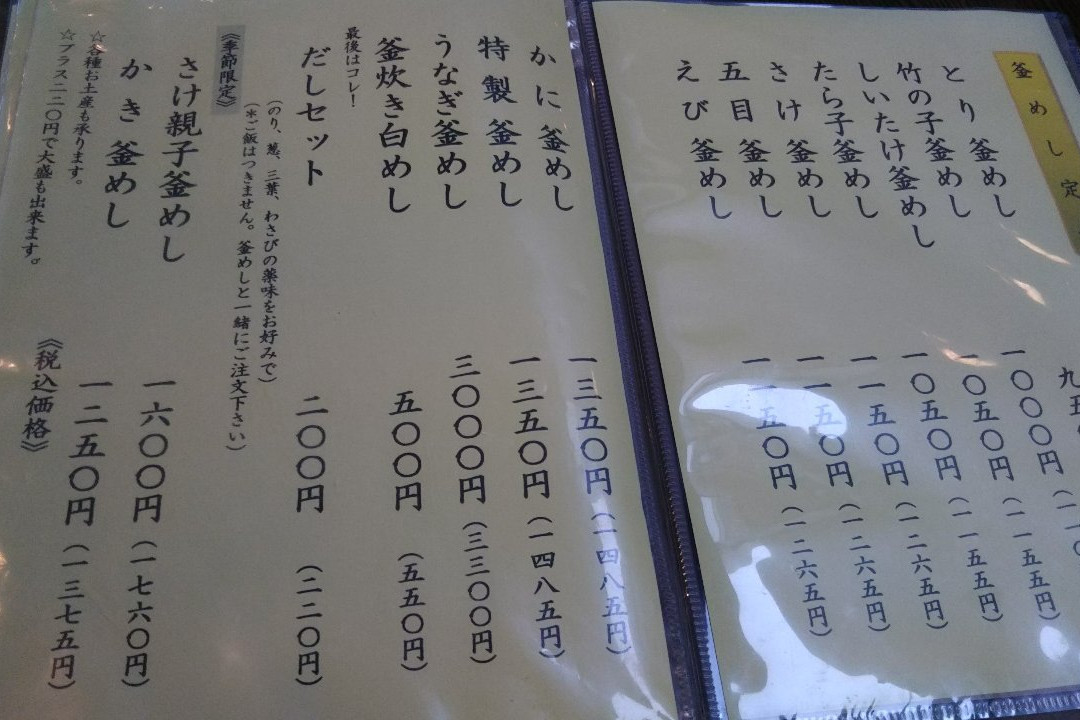 釜めし定
とり釜めし 九五
竹の子釜めし 一〇〇〇円（一一〇
しいたけ釜めし 一〇五〇円（一一五五円）
たら子釜めし 一〇五〇円（一一五五円）
さけ釜めし 一一五〇円（一二六五円）
五目釜めし 一一五〇円（一二六五円）
えび釜めし 一一五〇円（一二六五円）
かに釜めし 一三五〇円（一四八五円）
特製釜めし 一三五〇円（一四八五円）
うなぎ釜めし 三〇〇〇円（三三〇〇円）
釜炊き白めし 五〇〇円（五五〇円）
最後はコレ！
だしセット 二〇〇円（二二〇円）
（のり、葱、三葉、わさびの薬味をお好みで）
（※ご飯はつきません。釜めしと一緒にご注文下さい）
《季節限定》
さけ親子釜めし 一六〇〇円（一七六〇円）
かき釜めし 一二五〇円（一三七五円）
☆各種お土産も承ります。
☆プラス二二〇円で大盛も出来ます。
《税込価格》